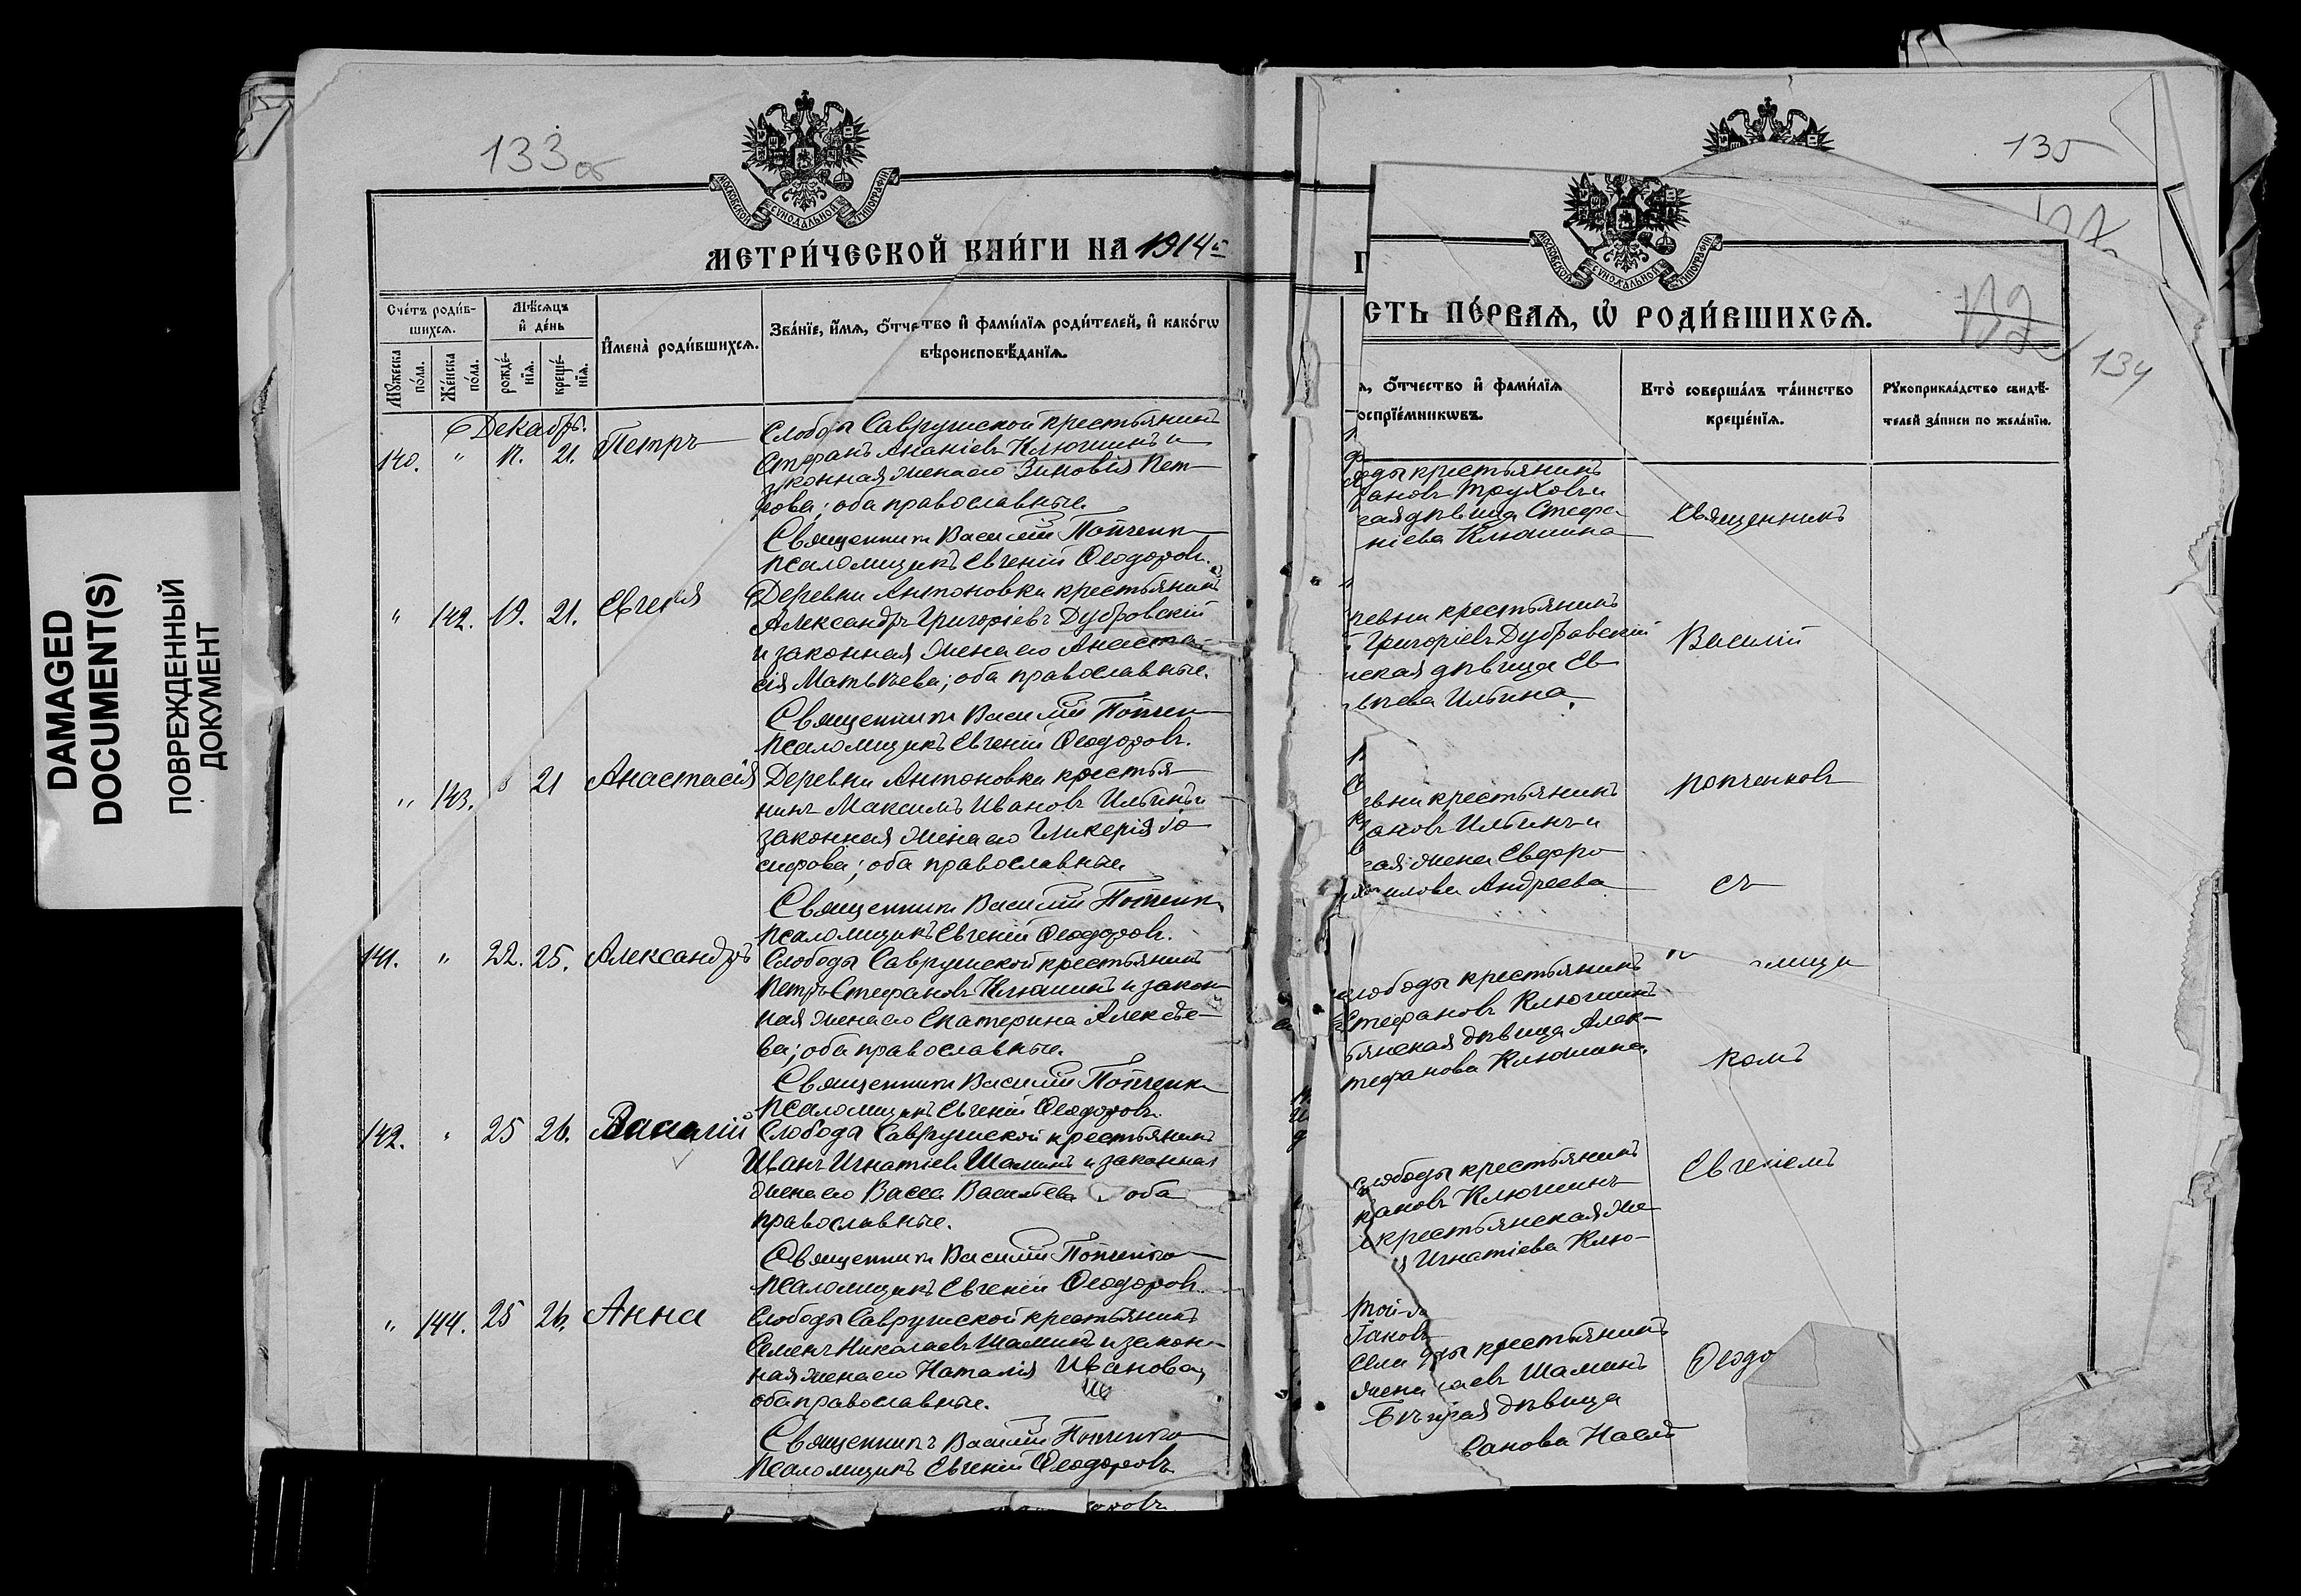 DAMAGED
DOCUMENT(S)
ПОВРЕЖДЕННЫЙ
ДОКУМЕНТ
133об
МОСКОВСКОЙ СѴНОДАЛЬНОЙ ТИПОГРАФІИ
МЕТРИ́ЧЕСКОЙ КНИ́ГИ НА 1914й
Сче́тъ роди́в-
шихсѧ.
Мꙋ́жеска
по́ла.
Же́нска
по́ла.
Мѣ́сѧцъ
и҆ де́нь
рожде́-
нїѧ.
креще́-
нїѧ.
И҆мена̀ роди́вшихсѧ.
Зва́нїе, и҆́мѧ, ѻ҆́тчество и҆ фами́лїѧ роди́телей, и҆ како́гѡ
вѣроисповѣ́данїѧ.
Декабрь.
140. " 17. 21. Петръ
Слободы Саврушской крестьянинъ
Стефанъ Ананіевъ Клюшинъ и
законная жена его Зиновія Пет-
рова; оба православные.
Священникъ Василій Попченк
Псаломщикъ Евгеній Ѳеодоровъ.
" 142. 19. 21. Евгенія
Деревни Антоновки крестьянинъ
Александръ Григоріевъ Дубровскій
и законная жена его Анаста-
сія Матвѣева; оба православные.
Священникъ Василій Попчен
Псаломщикъ Евгеній Ѳеодоровъ.
" 143. 21 Анастасія
Деревни Антоновки крестья-
нинъ Максимъ Ивановъ Ильинъ и
законная жена его Гликерія Іо-
сифова; оба православные
Священникъ Василій Попченк
Псаломщикъ Евгеній Ѳеодоровъ.
141. " 22. 25. Александръ
Слободы Саврушской крестьянинъ
Петръ Стефановъ Клюшинъ и закон-
ная жена его Екатерина Алексѣе-
ва; оба православные.
Священникъ Василій Попченк
Псаломщикъ Евгеній Ѳеодоровъ.
142. " 25 26. Василій
Слобода Саврушской крестьянинъ
Иванъ Игнатіевъ Шаминъ и законная
жена его Васса Васильева оба
православные.
Священникъ Василій Попченко
Псаломщикъ Евгеній Ѳеодоровъ.
" 144. 25 26. Анна
Слободы Саврушской крестьянинъ
Семенъ Николаевъ Шаминъ и закон-
ная жена его Наталія Иванова,
оба православные.
Священникъ Василій Попченко
Псаломщикъ Евгеній Ѳеодоровъ.
135
134
МОСКОВСКОЙ СѴНОДАЛЬНОЙ ТИПОГРАФІИ
СТЬ ПЕ́РВАѦ, Ѡ҆ РОДИ́ВШИХСѦ.
ѧ, ѻ҆́тчество и҆ фами́лїѧ
оспрїе́мникѡвъ.
Кто̀ соверша́лъ та́инство
креще́нїѧ.
Рꙋкоприкла́дство свидѣ́-
телей за́писи по жела́нїю.
оды крестьянинъ
ановъ Труховъ и
кая дѣвица Стефа
ніева Клюшина
Священникъ
ревни крестьянинъ
Григоріевъ Дубровскій
нская дѣвица Ев
вѣева Ильина.
Василій
вни крестьянинъ
ановъ Ильинъ и
кая жена Евфро
илова Андреева
Попченковъ
съ
слободы крестьянинъ
Стефановъ Клюшинъ
ьянская дѣвица Алек-
тефанова Клюшина.
мщи
комъ
слободы крестьянинъ
ановъ Клюшинъ
крестьянская же
Игнатіева Клю-
Евгеніемъ
Той-
Іаковъ
ды крестьянинъ
жена
лаевъ Шаминъ
кая дѣвица
Ѳеодо